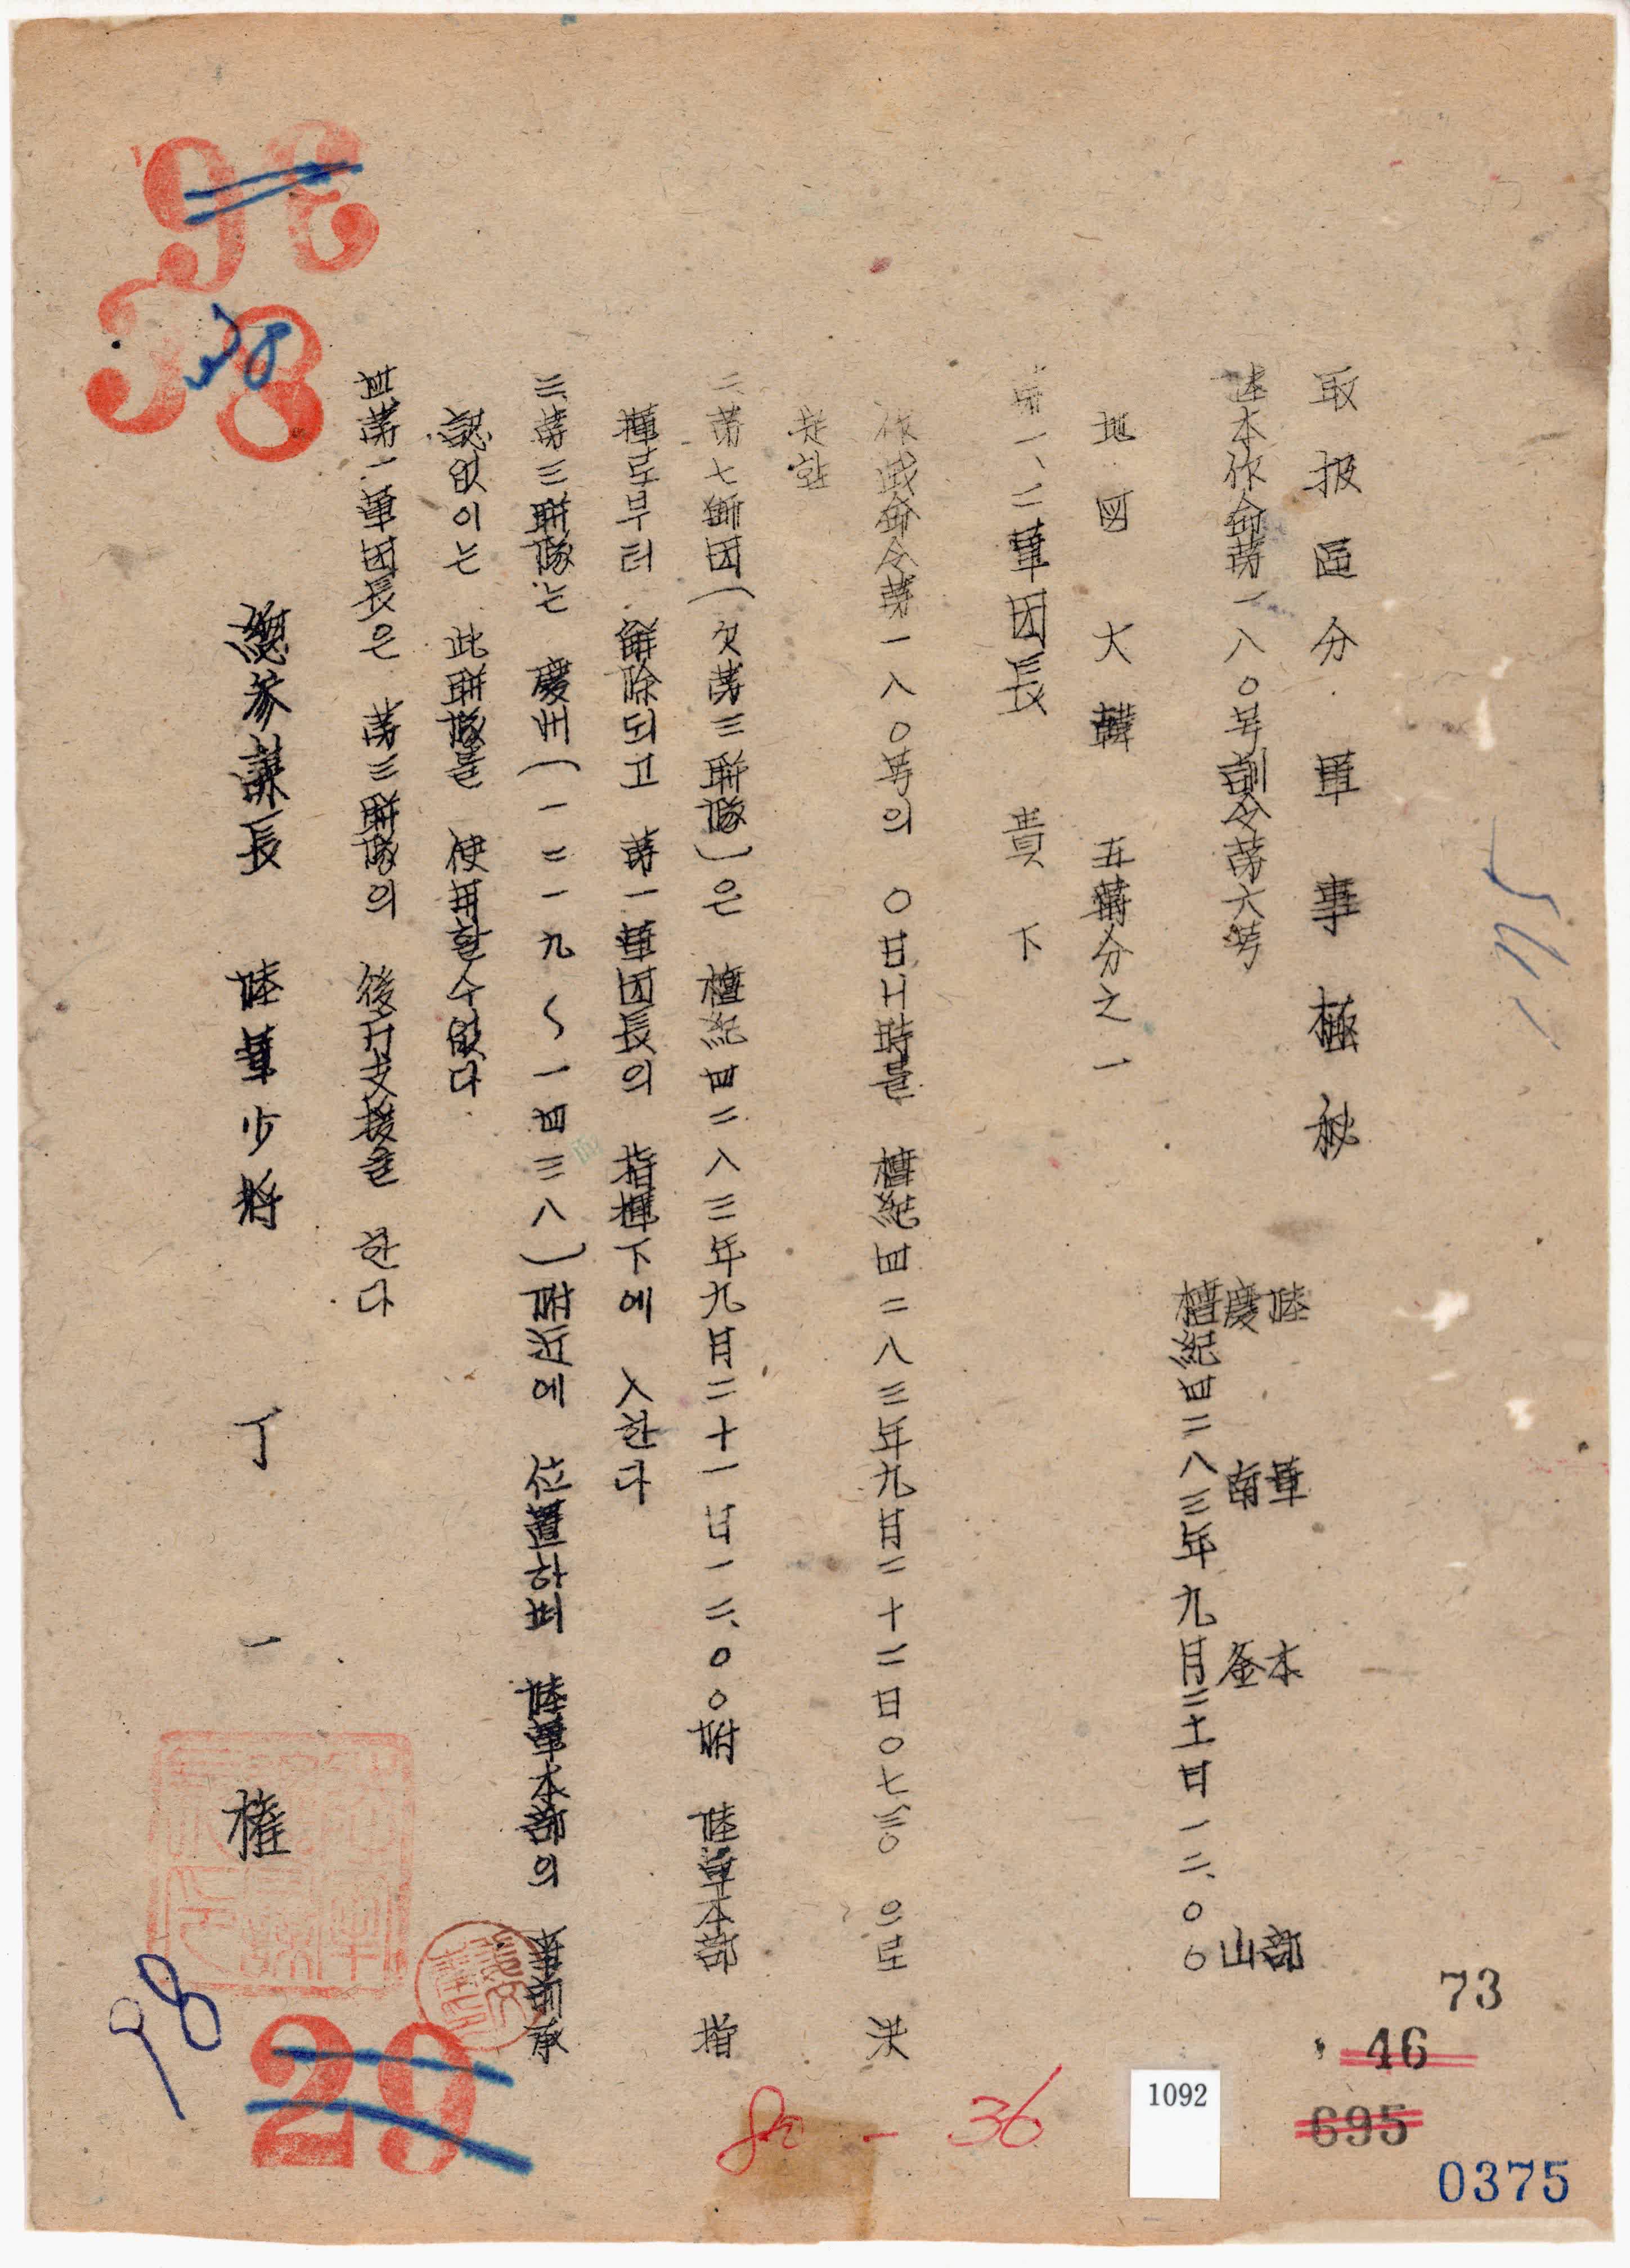 取扱區分 軍事極秘
陸軍本部
慶南釜山
檀紀四二八三年九月二十一日一二、〇〇
陸本作命第一八〇号訓令第六号
地図 大韓 五萬分之一
第一、二軍団長 貴下
作戰命令第一八〇号의 〇日H時를 檀紀四二八三年九月二十二日〇七三〇 으로 決
定함
二、第七師団(欠第三聯隊)은 檀紀四二八三年九月二十一日一二、〇〇附 陸軍本部 指
揮로부터 解除되고 第一軍団長의 指揮下에 入한다
三、第三聯隊는 慶州(一二一九~一四三八)附近에 位置하며 陸軍本部의 事前承
認없이는 此聯隊를 使用할수없다
四、第一軍団長은 第三聯隊의 後方支援을 한다
總參謀長 陸軍少將 丁一權
96
38
38
98
29
82-36
1092
73
46
695
0375